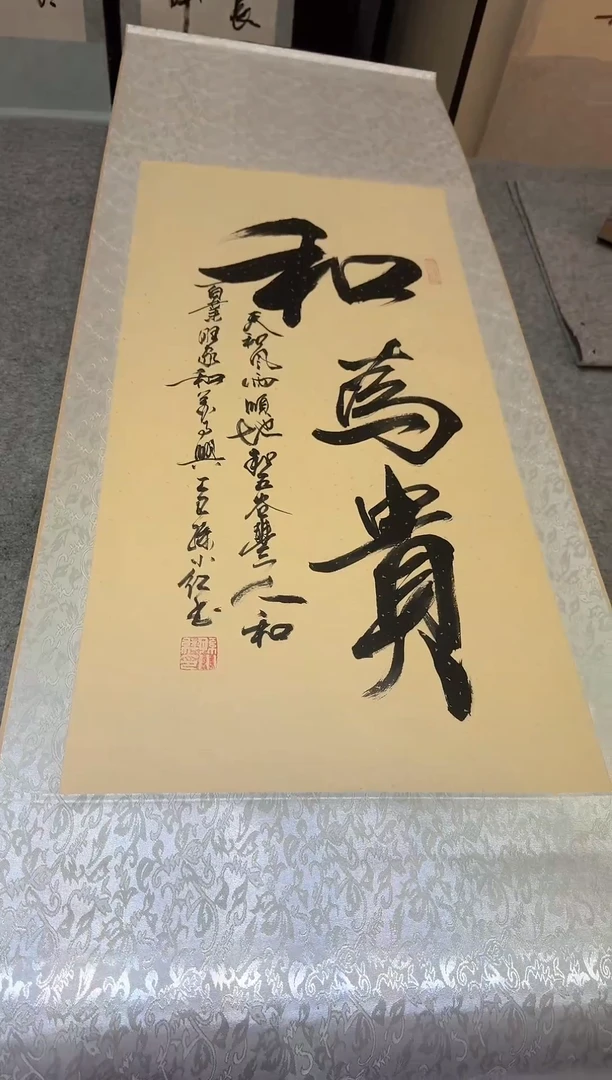 和為貴
天和风雨順地和五谷豐人和
百業旺家和萬事興 孫小红书
長